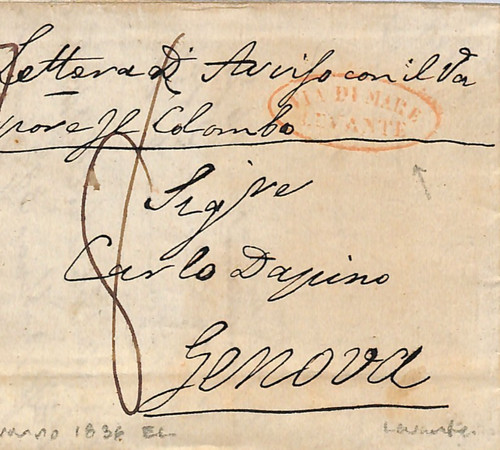 Lettera di Avviso con il Va
pore Il Colombo
VIA DI MARE
LEVANTE
Sigre
Carlo Dapino
Genova
1836 EL Levante.